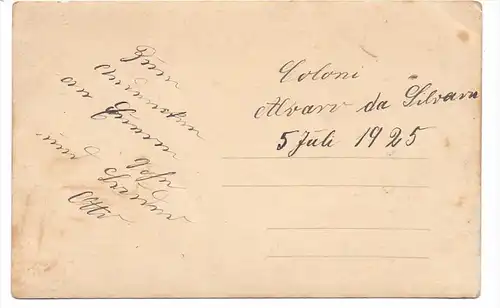 Zum
Andenken
an Euren
Sohn
und
Otto
Coloni
Alvaro da Silvara
5 Juli 1925